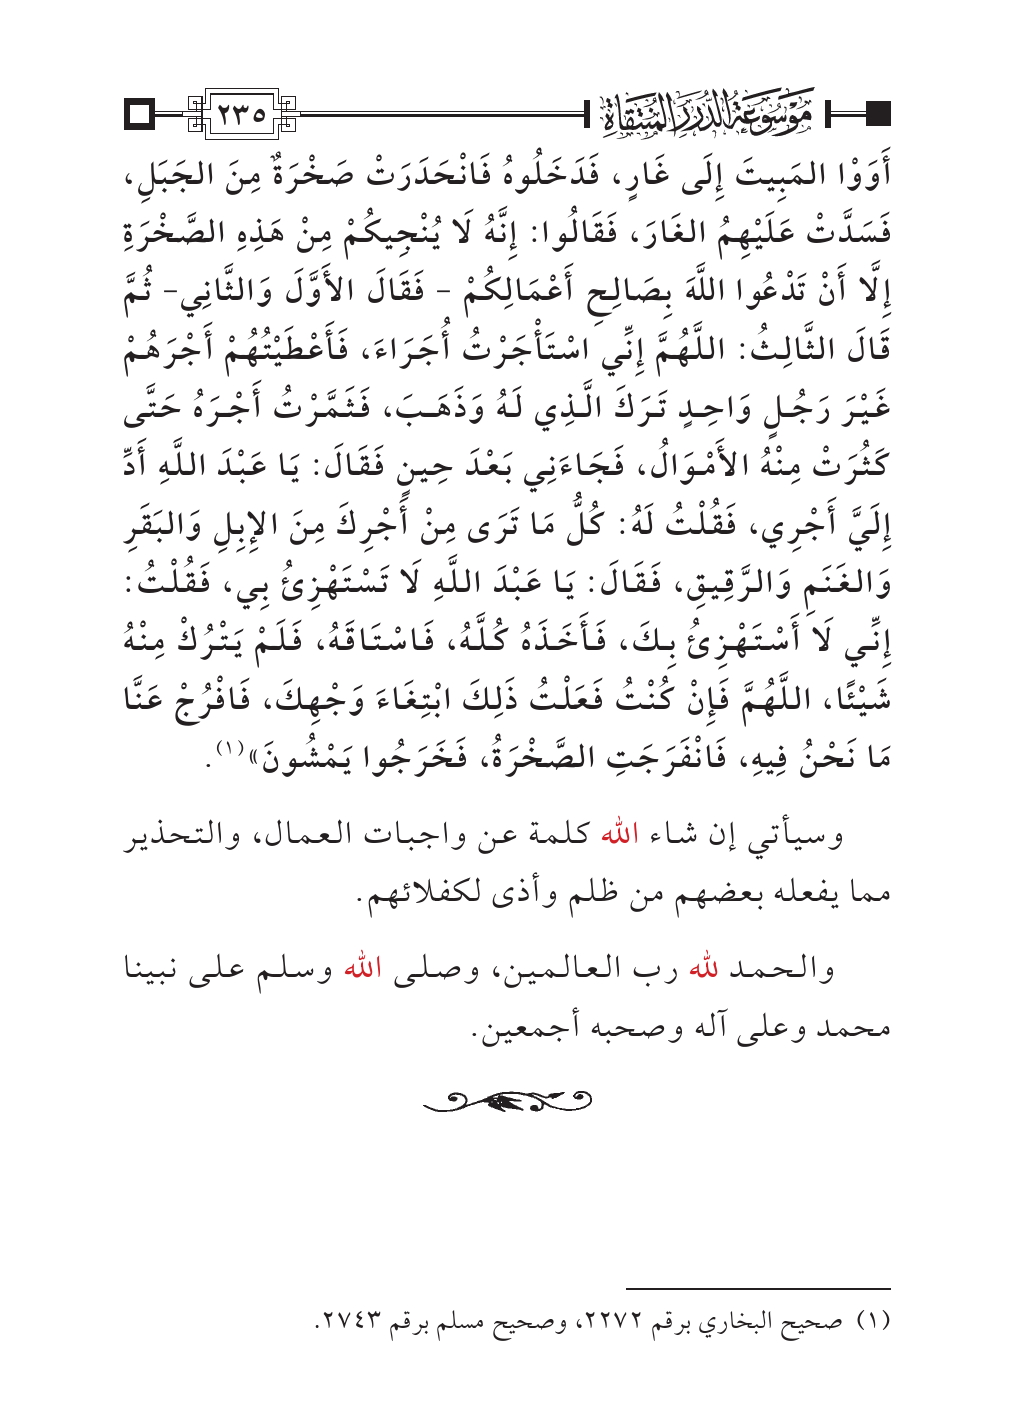 موسوعة الدرر المنتقاة
٢٣٥
أَوَوْا المَبِيتَ إِلَى غَارٍ، فَدَخَلُوهُ فَانْحَدَرَتْ صَخْرَةٌ مِنَ الجَبَلِ،
فَسَدَّتْ عَلَيْهِمُ الغَارَ، فَقَالُوا: إِنَّهُ لَا يُنْجِيكُمْ مِنْ هَذِهِ الصَّخْرَةِ
إِلَّا أَنْ تَدْعُوا اللَّهَ بِصَالِحِ أَعْمَالِكُمْ – فَقَالَ الأَوَّلَ وَالثَّانِي– ثُمَّ
قَالَ الثَّالِثُ: اللَّهُمَّ إِنِّي اسْتَأْجَرْتُ أُجَرَاءَ، فَأَعْطَيْتُهُمْ أَجْرَهُمْ
غَيْرَ رَجُلٍ وَاحِدٍ تَرَكَ الَّذِي لَهُ وَذَهَبَ، فَثَمَّرْتُ أَجْرَهُ حَتَّى
كَثُرَتْ مِنْهُ الأَمْوَالُ، فَجَاءَنِي بَعْدَ حِينٍ فَقَالَ: يَا عَبْدَ اللَّهِ أَدِّ
إِلَيَّ أَجْرِي، فَقُلْتُ لَهُ: كُلُّ مَا تَرَى مِنْ أَجْرِكَ مِنَ الإِبِلِ وَالبَقَرِ
وَالغَنَمِ وَالرَّقِيقِ، فَقَالَ: يَا عَبْدَ اللَّهِ لَا تَسْتَهْزِئُ بِي، فَقُلْتُ:
إِنِّي لَا أَسْتَهْزِئُ بِكَ، فَأَخَذَهُ كُلَّهُ، فَاسْتَاقَهُ، فَلَمْ يَتْرُكْ مِنْهُ
شَيْئًا، اللَّهُمَّ فَإِنْ كُنْتُ فَعَلْتُ ذَلِكَ ابْتِغَاءَ وَجْهِكَ، فَافْرُجْ عَنَّا
مَا نَحْنُ فِيهِ، فَانْفَرَجَتِ الصَّخْرَةُ، فَخَرَجُوا يَمْشُونَ»(١).
وسيأتي إن شاء الله كلمة عن واجبات العمال، والتحذير
مما يفعله بعضهم من ظلم وأذى لكفلائهم.
والحمد لله رب العالمين، وصلى الله وسلم على نبينا
محمد وعلى آله وصحبه أجمعين.
(١) صحيح البخاري برقم ٢٢٧٢، وصحيح مسلم برقم ٢٧٤٣.